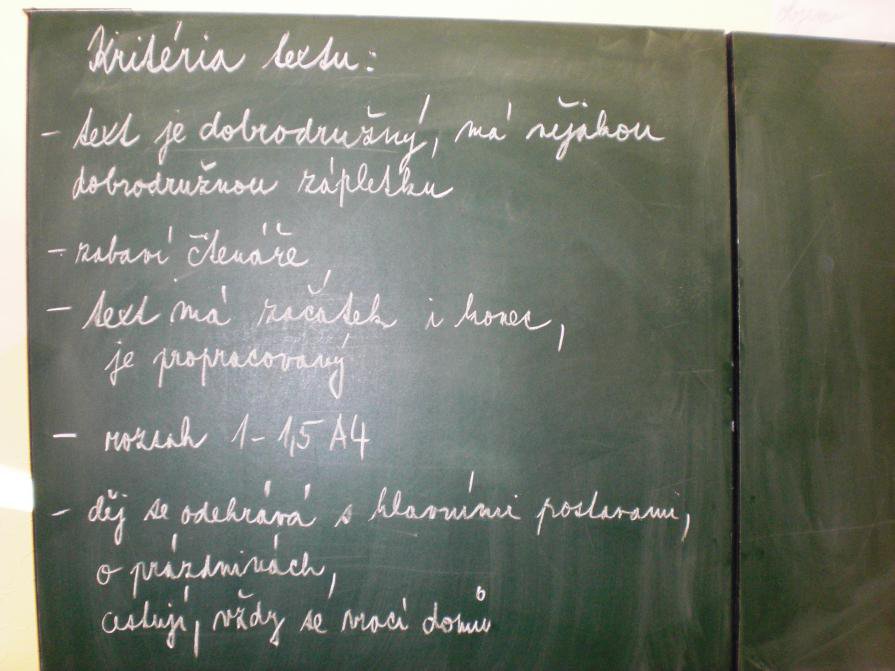 Kritéria textu:
- text je dobrodružný, má nějakou
dobrodružnou zápletku
- zabaví čtenáře
- text má začátek i konec,
je propracovaný
- rozsah 1-1,5 A4
- děj se odehrává s hlavními postavami,
o prázdninách,
cestují, vždy se vrací domů